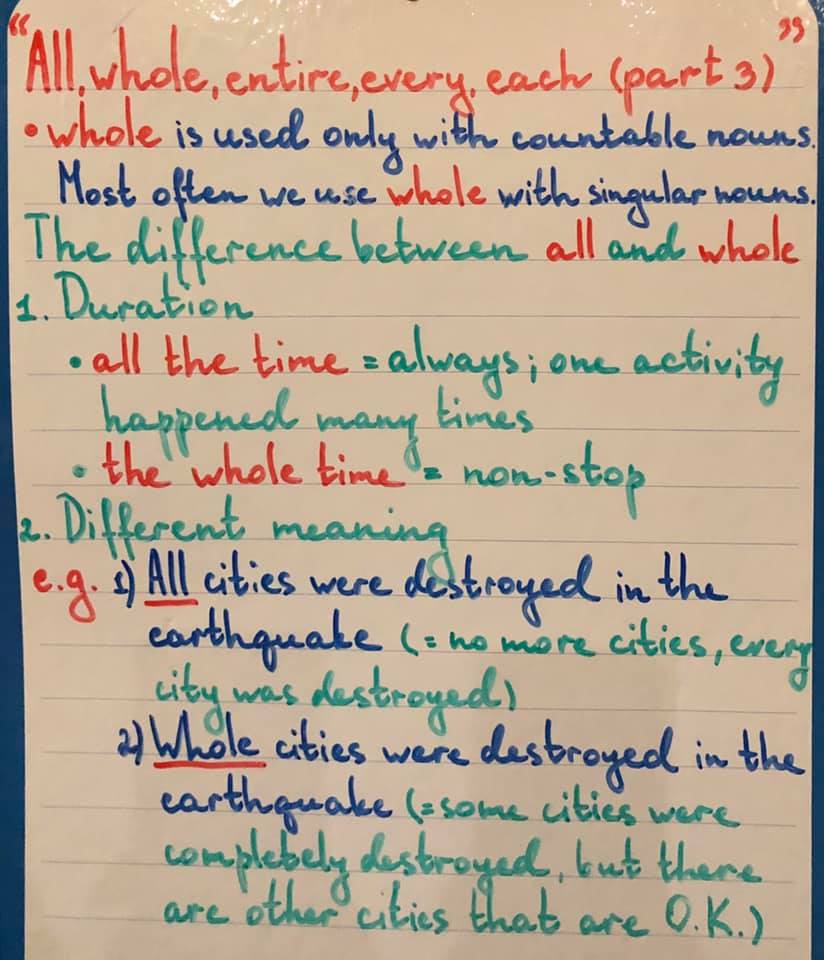 "All, whole, entire, every, each (part 3)"
• whole is used only with countable nouns.
Most often we use whole with singular nouns.
The difference between all and whole
1. Duration
• all the time = always; one activity
happened many times
• the whole time = non-stop
2. Different meaning
e.g. 1) All cities were destroyed in the
earthquake (= no more cities, every
city was destroyed)
2) Whole cities were destroyed in the
earthquake (= some cities were
completely destroyed, but there
are other cities that are O.K.)